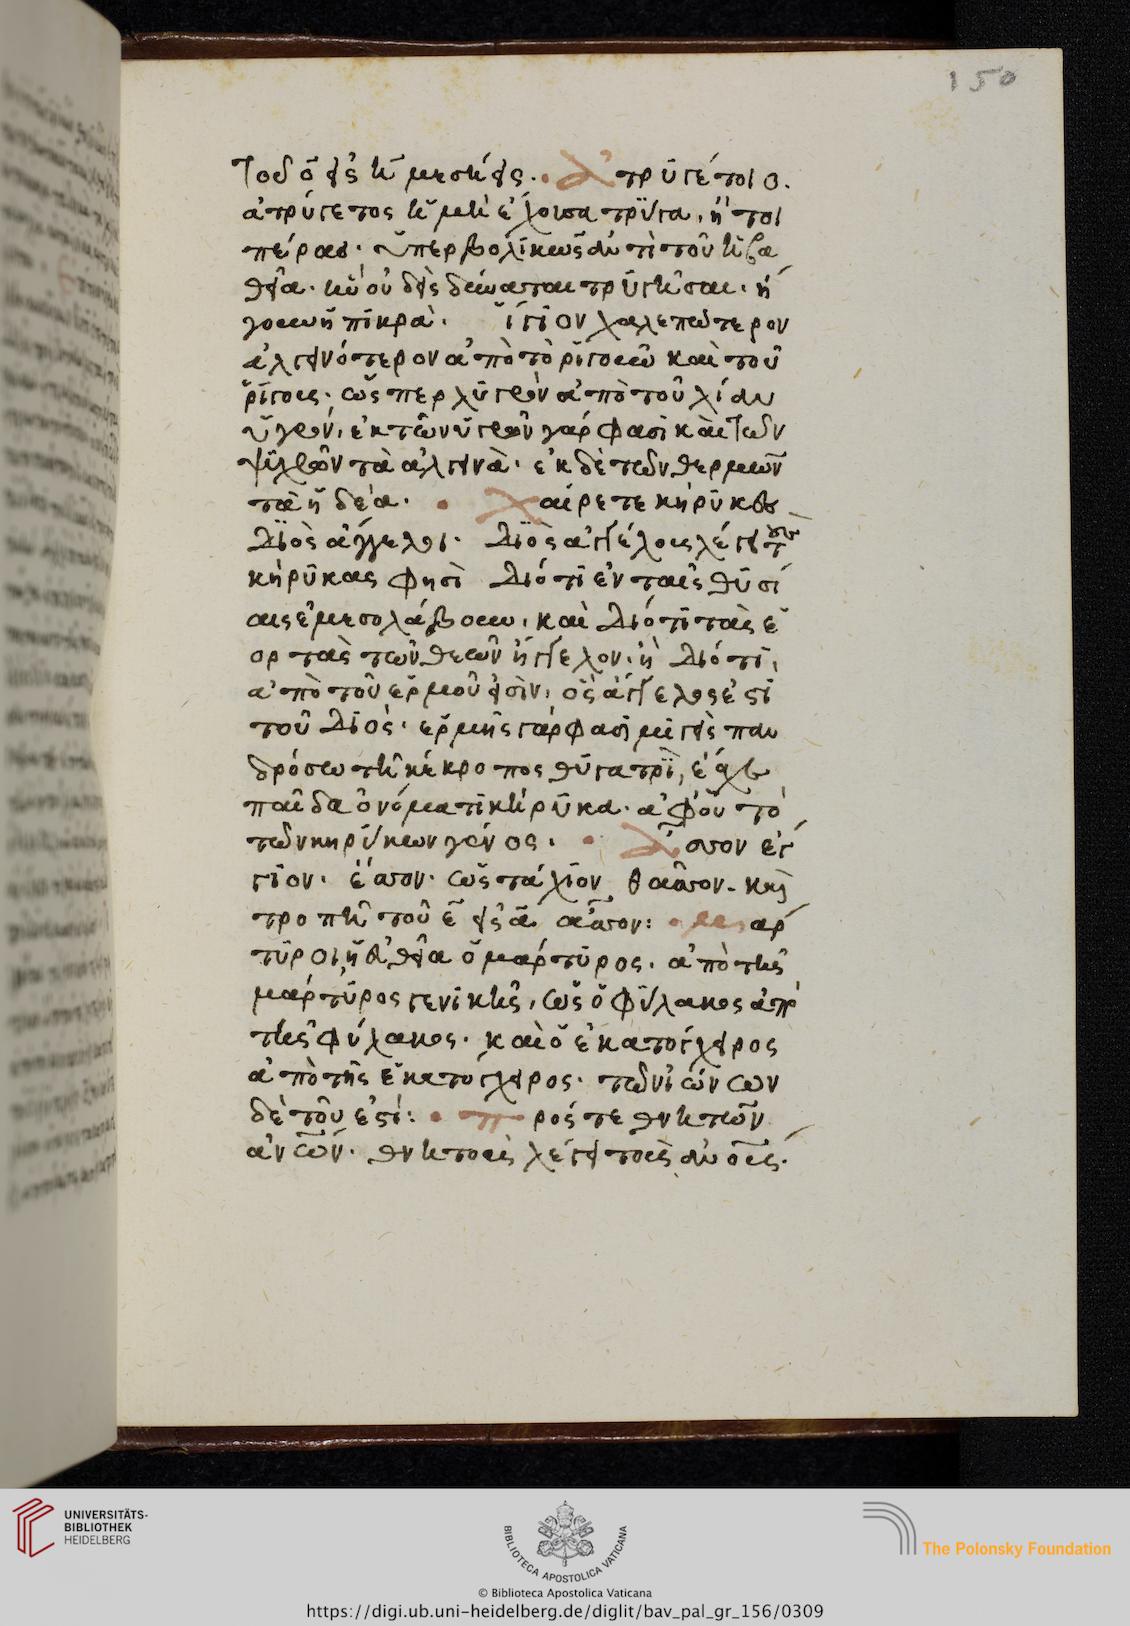 150
τοῦ ὃ εἰς ἢ μεστήεις. ἀτρυγέτοιο.
ἀτρύγετος ἡ μὴ ἔχουσα τρύγα, ἤτοι
πέρας. ὑπερβολικῶς ἀντὶ τοῦ ἡ βα
θεῖα. ἣν οὐδεὶς δύναται τρυγῆσαι. ἢ
γοῦν ἡ πικρά. ῥίγιον χαλεπώτερον
ἀλγεινότερον ἀπὸ τὸ ῥιγοῦν καὶ τοῦ
ῥίγους. ὥσπερ λυγρὸν ἀπὸ τοῦ λίαν
ὑγρόν, ἐκ τῶν ὑγρῶν γάρ φασι καὶ τῶν
ψυχρῶν τὰ ἀλγεινά. ἐκ δὲ τῶν θερμῶν
τὰ ἡδέα. χαίρετε κήρυκες
Διὸς ἄγγελοι. Διὸς ἀγγέλους λέγει τοὺς
κήρυκας φησὶ Διότι ἐν ταῖς θυσί
αις ἐμεσολάβουν, καὶ Διότι τὰς ἑ
ορτὰς τῶν θεῶν ἤγγελον. ἢ Διότι,
ἀπὸ τοῦ ἑρμοῦ εἰσὶν, ὃς ἄγγελος ἐστὶ
τοῦ Διός. ἑρμῆς γάρ φασι μιγεὶς παν
δρόσω τῆ κέκροπος θυγατρὶ, ἔσχε
παῖδα ὀνόματι κήρυκα. ἀφ' οὗ τὸ
τῶν κηρύκων γένος. ἆσσον ἐγ
γιον. ἔασσον. ὡς τάχιον θᾶσσον. καὶ
τροπῆ τοῦ ε εἰς α ἆσσον: μαρ
τυροι ἡ εὐθεῖα ὁ μάρτυρος. ἀπὸ τῆς
μάρτυρος γενικῆς, ὡς ὁ φύλακος ἀπὸ
τῆς φύλακος. καὶ ὁ ἑκατόγχειρος
ἀπὸ τῆς ἑκατόγχειρος. τῶν ἰώνων
δὲ τοῦ ἐστί: πρός τε θνητῶν
ἀνων. θνητοὺς λέγει τοὺς ανους.
UNIVERSITÄTS-
BIBLIOTHEK
HEIDELBERG
BIBLIOTECA APOSTOLICA VATICANA
The Polonsky Foundation
© Biblioteca Apostolica Vaticana
https://digi.ub.uni-heidelberg.de/diglit/bav_pal_gr_156/0309